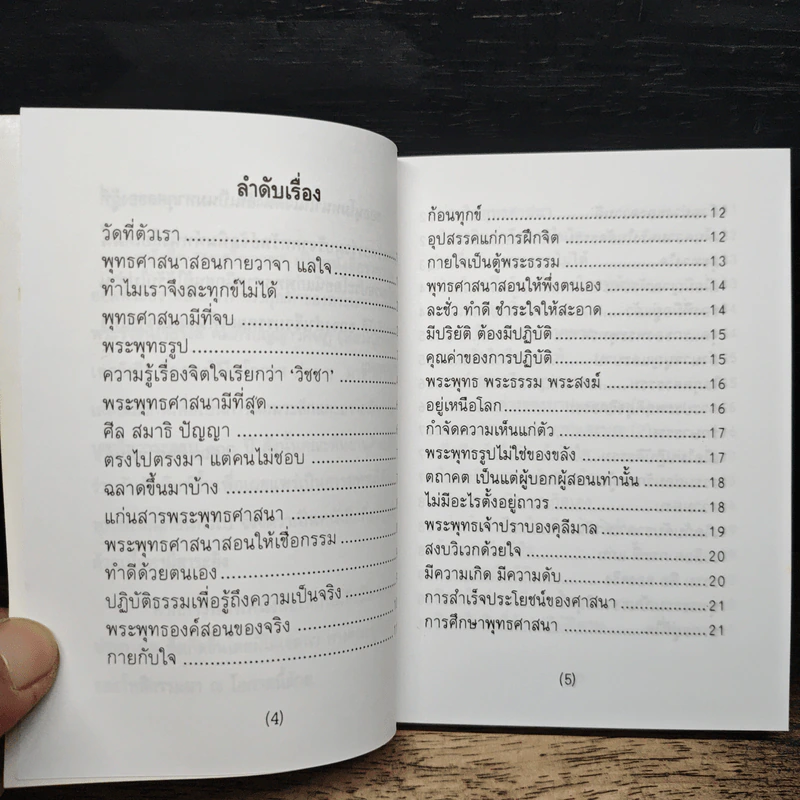 ลำดับเรื่อง
วัดที่ตัวเรา
พุทธศาสนาสอนกายวาจา แลใจ
ทำไมเราจึงละทุกข์ไม่ได้
พุทธศาสนามีที่จบ
พระพุทธรูป
ความรู้เรื่องจิตใจเรียกว่า ‘วิชชา’
พระพุทธศาสนามีที่สุด
ศีล สมาธิ ปัญญา
ตรงไปตรงมา แต่คนไม่ชอบ
ฉลาดขึ้นมาบ้าง
แก่นสารพระพุทธศาสนา
พระพุทธศาสนาสอนให้เชื่อกรรม
ทำดีด้วยตนเอง
ปฏิบัติธรรมเพื่อรู้ถึงความเป็นจริง
พระพุทธองค์สอนของจริง
กายกับใจ
(4)
ก้อนทุกข์ 12
อุปสรรคแก่การฝึกจิต 12
กายใจเป็นตู้พระธรรม 13
พุทธศาสนาสอนให้พึ่งตนเอง 14
ละชั่ว ทำดี ชำระใจให้สะอาด 14
มีปริยัติ ต้องมีปฏิบัติ 15
คุณค่าของการปฏิบัติ 15
พระพุทธ พระธรรม พระสงฆ์ 16
อยู่เหนือโลก 16
กำจัดความเห็นแก่ตัว 17
พระพุทธรูปไม่ใช่ของขลัง 17
ตถาคต เป็นแต่ผู้บอกผู้สอนเท่านั้น 18
ไม่มีอะไรตั้งอยู่ถาวร 18
พระพุทธเจ้าปราบองคุลีมาล 19
สงบวิเวกด้วยใจ 20
มีความเกิด มีความดับ 20
การสำเร็จประโยชน์ของศาสนา 21
การศึกษาพุทธศาสนา 21
(5)